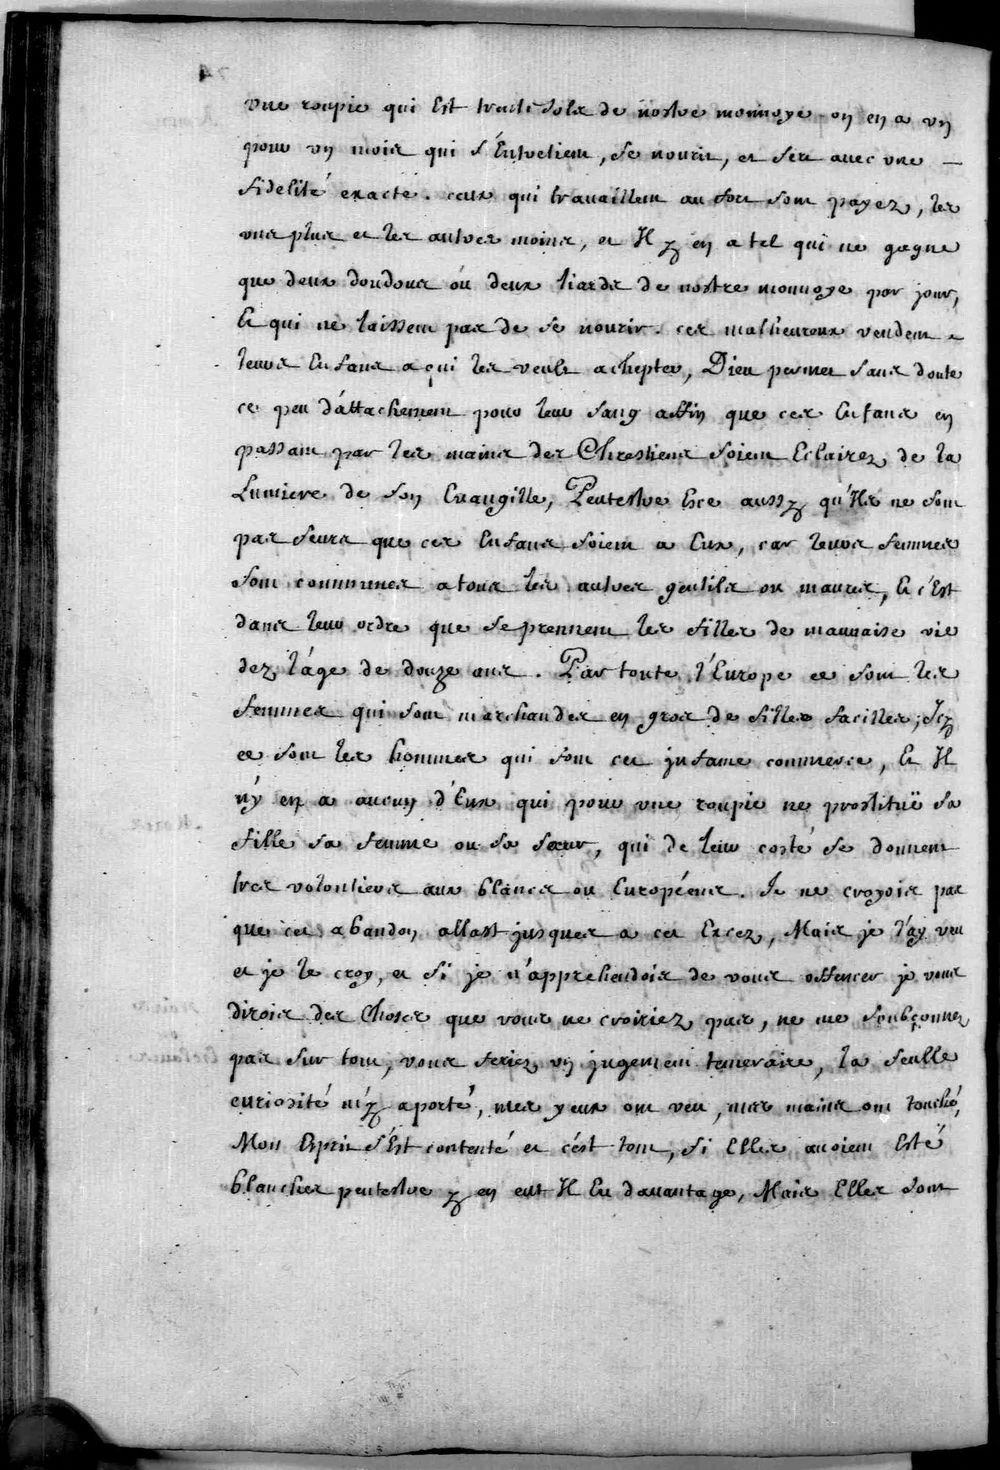 vne roupie qui Est trente sols de nostre monnoye on en a vn
pour vn mois qui s'Entretient, se nourit, et sert auec vne —
fidelité exacte. ceux qui trauaillent au fort sont payez, les
vns plus et les autres moins, et Il y en a tel qui ne gagne
que deux doudous oú deux liards de nostre monnoye par jour,
Et qui ne laissent pas de se nourir. ces malheureux vendent
leurs Enfans a qui les veult achepter, Dieu permet sans doute
ce peu d'áttachement pour leur sang affin que ces Enfans en
passant par les mains des Chrestiens soient Eclairez de la
Lumiere de son Euangille, Peutestre Esce aussy qu'Ils ne sont
pas seurs que ces Enfans soient a Eux, car leurs femmes
sont communes a tous les autres gentils ou maures, Et c'Est
dans leur ordre que se prennent les filles de mauuaise vie
dez l'áge de douze ans. Par toute l'Europe ce sont les
femmes qui sont marchandes en gros de filles faciles; Icy
ce sont les hommes qui font cet jnfame commerce, Et Il
n'y en a aucun d'Eux qui pour vne roupie ne prostituë sa
fille sa femme ou sa sœur, qui de leur costé se donnent
tres volontiers aux blancs ou Européens. Je ne croyois pas
que cet abandon allast jusques a cet Excez, Mais je l'ay veu
et je le croy, et si je n'apprehendois de vous offencer je vous
dirois des Choses que vous ne croiriez pas, ne me soubçonnez
pas sur tout, vous feriez vn jugement temeraire, la seulle
curiosité m'y a porté, mes yeux ont veu, mes mains ont touché,
Mon Esprit s'Est contenté et c'ést tout, si Elles auoient Esté
blanches peutestre y en eut Il Eu dauantage, Mais Elles sont